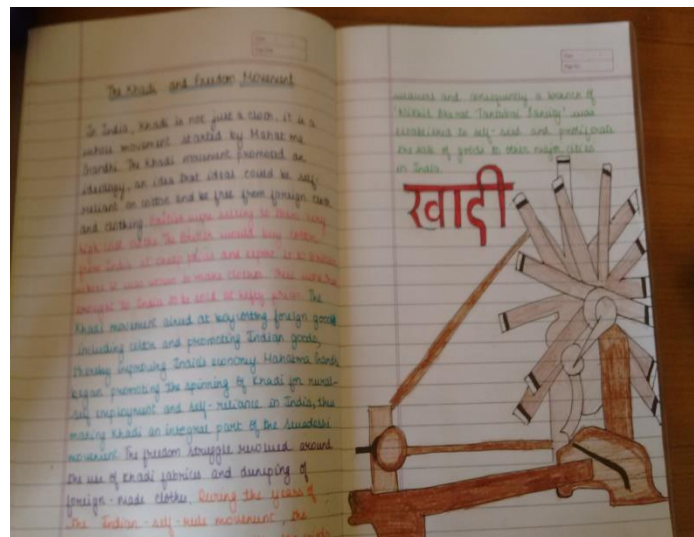 The Khadi and Freedom Movement
In India, Khadi is not just a cloth, it is a
whole movement started by Mahatma
Gandhi. The Khadi movement promoted an
ideology, an idea that ideas could be self-
reliant on cotton and be free from foreign cloth
and clothing. British were selling to them very
high cost cloths. The British would buy cotton
from India at cheap prices and export it to
where it was woven to make clothes. These were then
brought to India to be sold at hefty prices. The
Khadi movement aimed at boycotting foreign goods
including cotton and promoting Indian goods,
thereby improving India's economy. Mahatma Gandhi
began promoting the spinning of Khadi for rural-
self employment and self-reliance in India, thus
making Khadi an integral part of the swadeshi
movement. The freedom struggle revolved around
the use of khadi fabrics and dumping of
foreign-made clothes. During the years of
the Indian-self-rule movement, the
weavers and consequently a branch of
'Nikhil Bharat Tantubai Samity' was
established to self-seed and proliferate
the sale of goods to other major cities
in India.
खादी